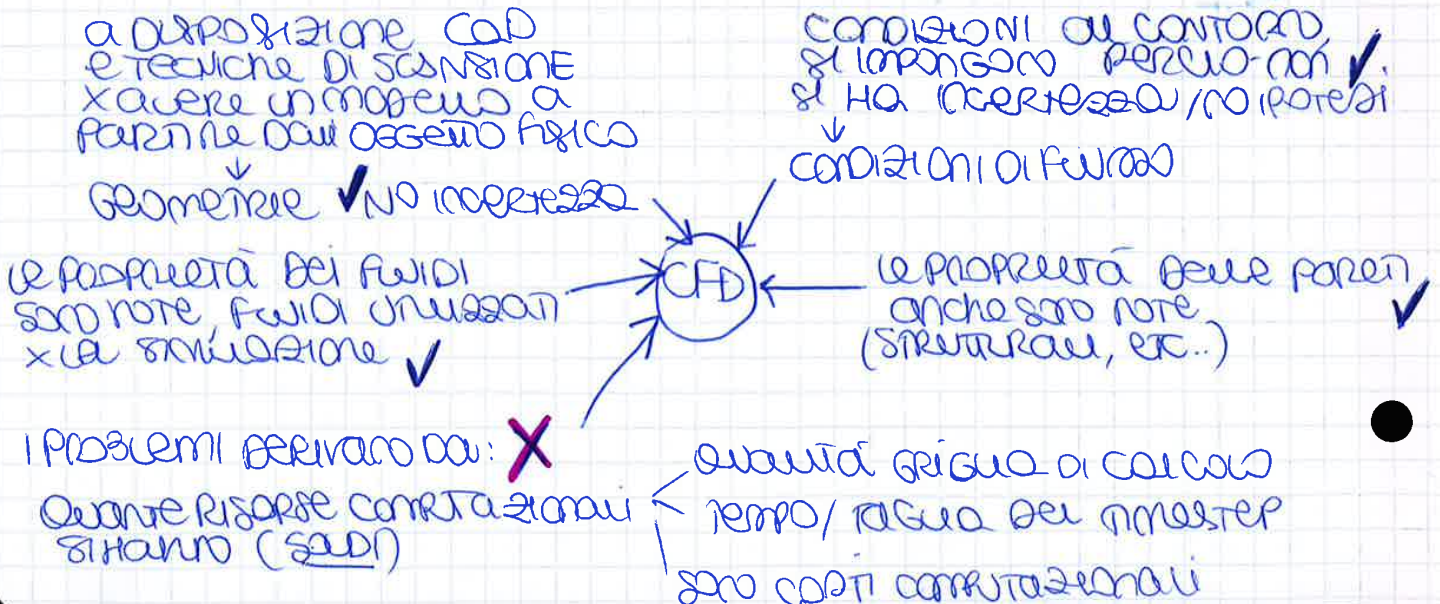 A DISPOSIZIONE CAD
E TECNICHE DI SCANSIONE
X AVERE UN MODELLO A
PARTIRE DALL'OGGETTO FISICO
↓
GEOMETRIE ✓ NO INCERTEZZA
CONDIZIONI AL CONTORNO,
SI IMPONGONO PERCIÒ NON ✓
SI HA INCERTEZZA/NO IPOTESI
↓
CONDIZIONI DI FLUSSO
CFD
LE PROPRIETÀ DEI FLUIDI
SONO NOTE, FLUIDI UTILIZZATI
X LA SIMULAZIONE ✓
LE PROPRIETÀ DELLE PARETI
ANCHE SONO NOTE ✓
(STRUTTURALI, ETC..)
I PROBLEMI DERIVANO DA: X
QUANTE RISORSE COMPUTAZIONALI
SI HANNO (SOLDI)
QUALITÀ GRIGLIA DI CALCOLO
TEMPO/TAGLIA DEL TIMESTEP
SONO COSTI COMPUTAZIONALI